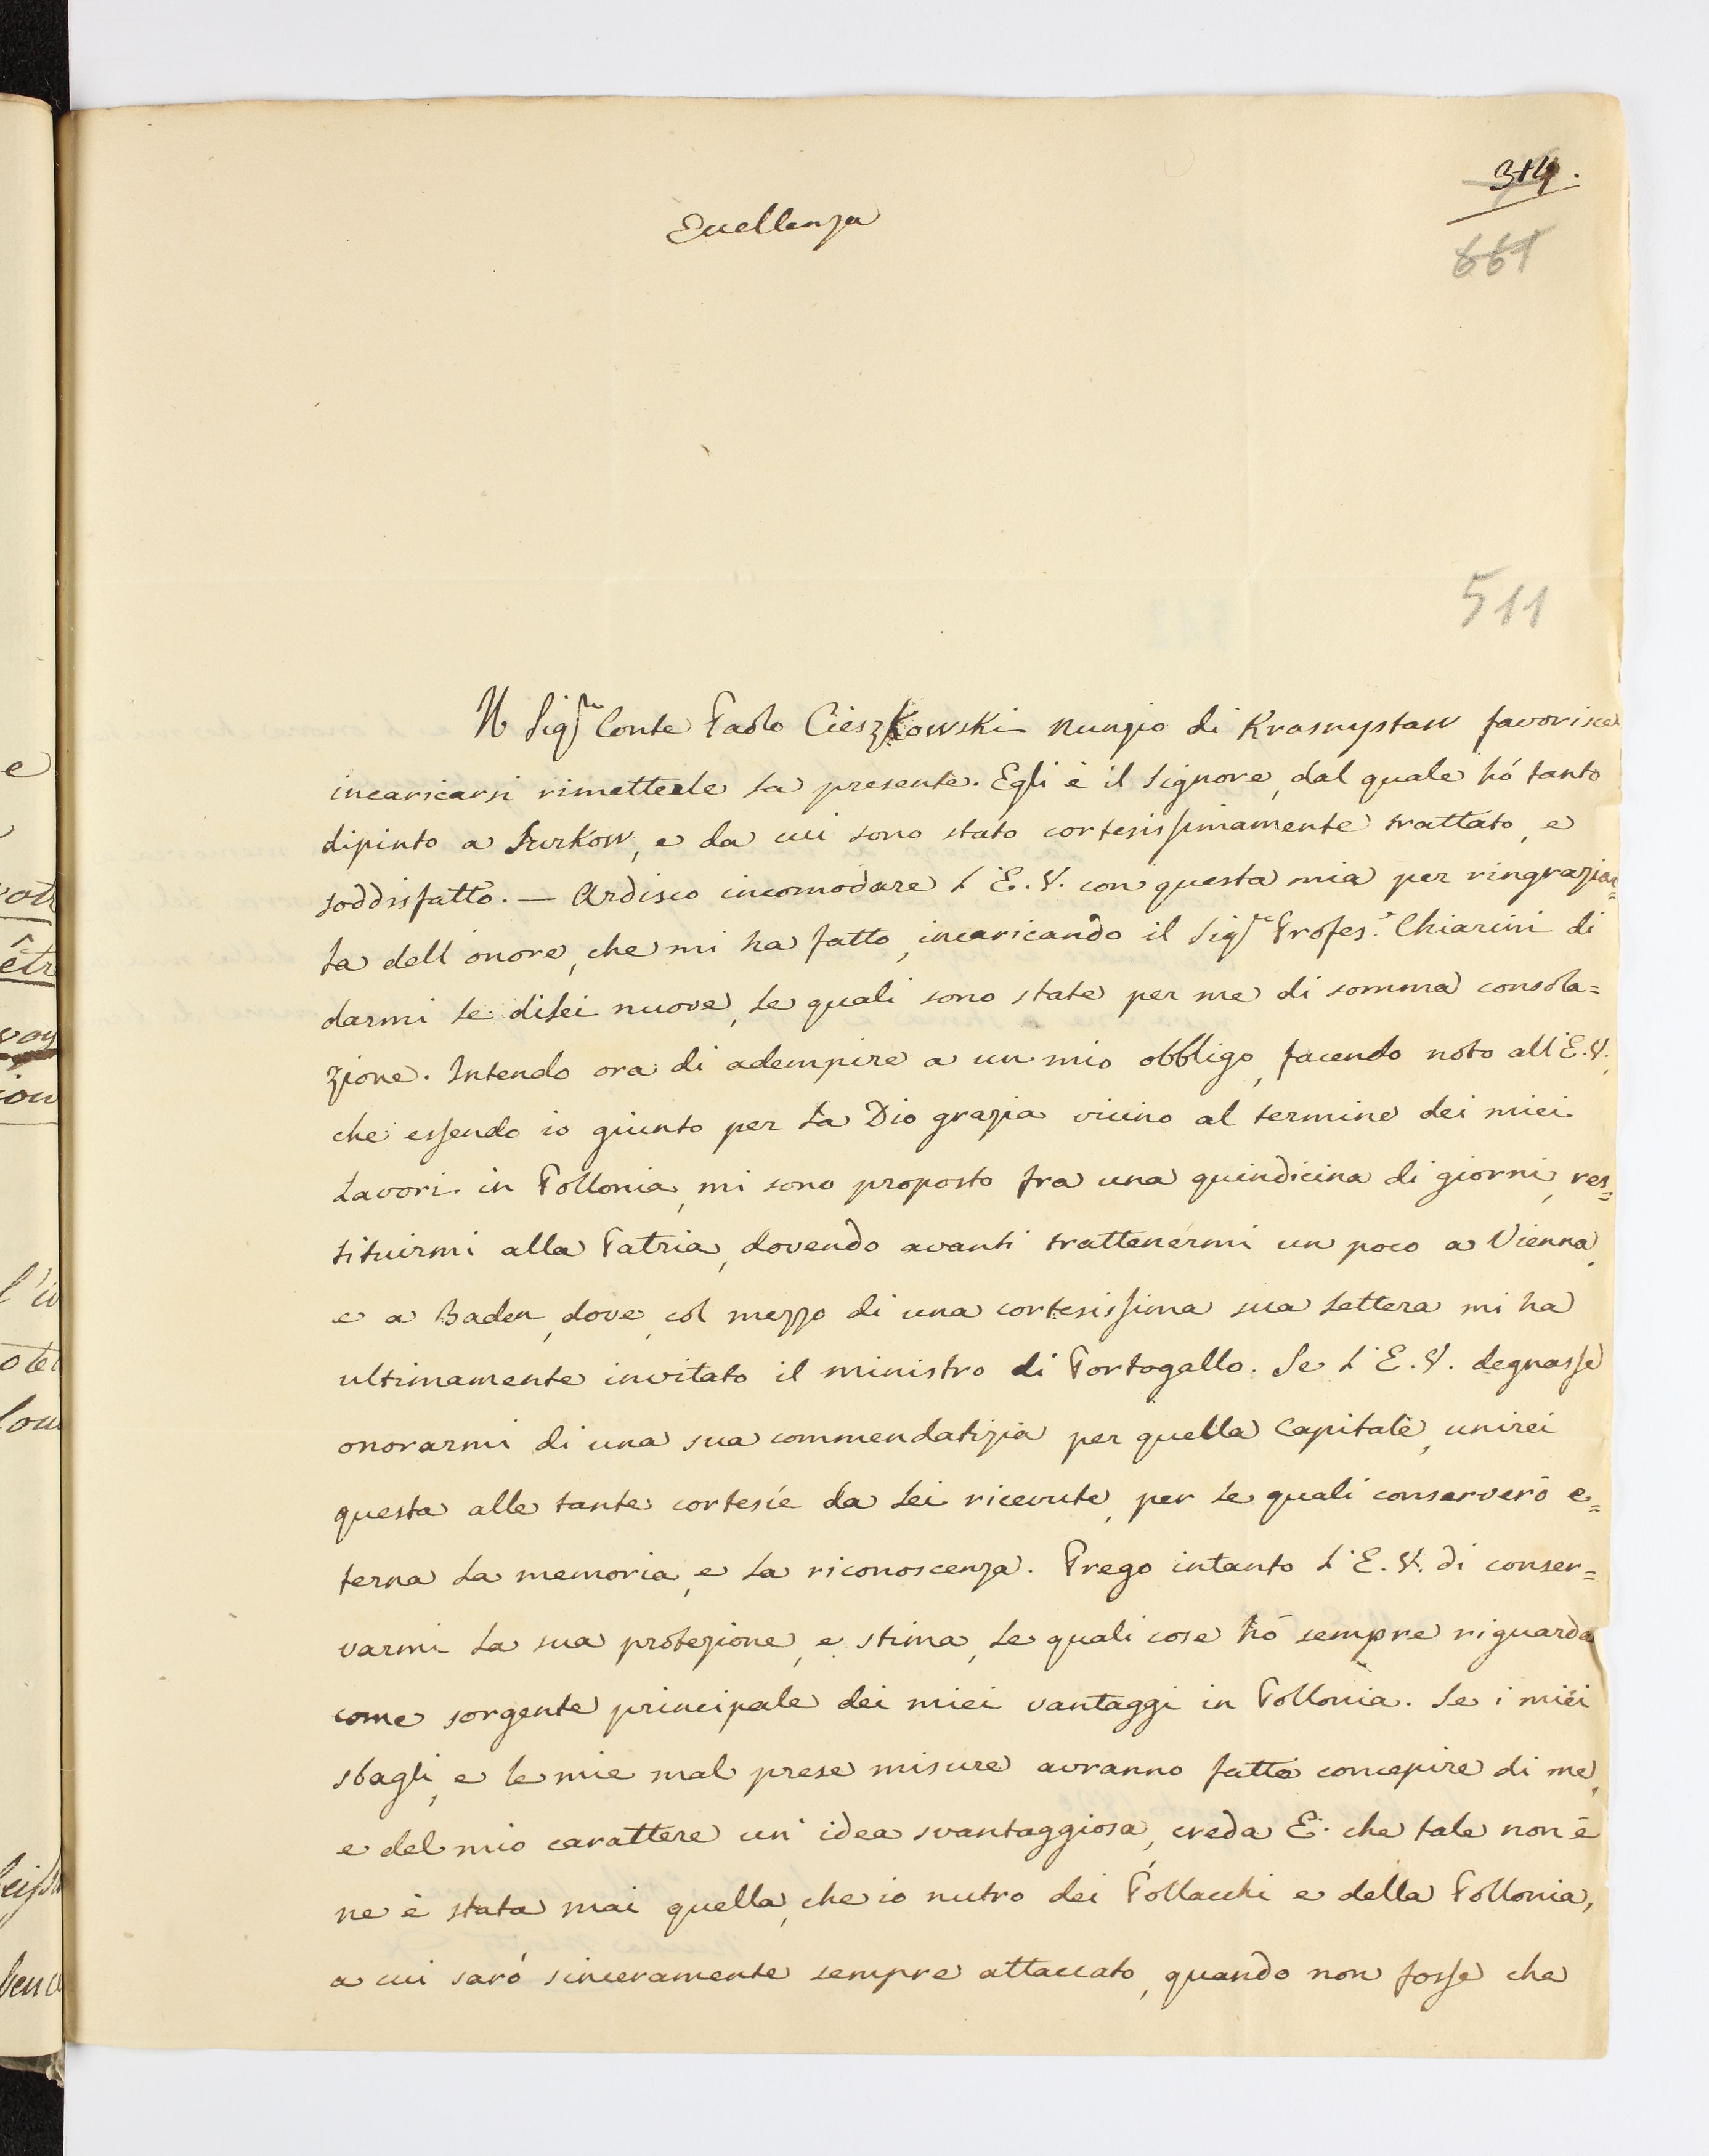 314.
Eccellenza
661
511
Il Sig.re Conte Paolo Cieszkowski Nunzio di Krasnystaw favorisce
incaricarsi rimetterle la presente. Egli è il Signore, dal quale hó tanto
dipinto a Surkow, e da cui sono stato cortesissimamente trattato, e
soddisfatto. — Ardisco incomodare L'E. V. con questa mia per ringraziar=
la dell'onore, che mi ha fatto, incaricando il Sig.re Profes.r Chiarini di
darmi le dilei nuove, le quali sono state per me di somma consola=
zione. Intendo ora di adempire a un mio obbligo, facendo noto all'E. V.,
che essendo io giunto per la Dio grazia vicino al termine dei miei
lavori in Pollonia, mi sono proposto fra una quindicina di giorni, res=
tituirmi alla Patria, dovendo avanti trattenermi un poco a Vienna,
e a Baden, dove, col mezzo di una cortesissima sua lettera mi ha
ultimamente invitato il ministro di Portogallo. Se L'E. V. degnasse
onorarmi di una sua commendatizia per quella Capitale, unirei
questa alle tante cortesie da Lei ricevute, per le quali conserverò e=
terna la memoria, e la riconoscenza. Prego intanto L'E. V. di conser=
varmi la sua protezione, e stima, le quali cose hò sempre riguarda
come sorgente principale dei miei vantaggi in Pollonia. Se i miei
sbagli, e le mie mal prese misure avranno fatto concepire di me,
e del mio carattere un'idea svantaggiosa, creda E. che tale non è
ne è stata mai quella, che io nutro dei Pollacchi e della Pollonia,
a cui saró sinceramente sempre attaccato, quando non fosse che